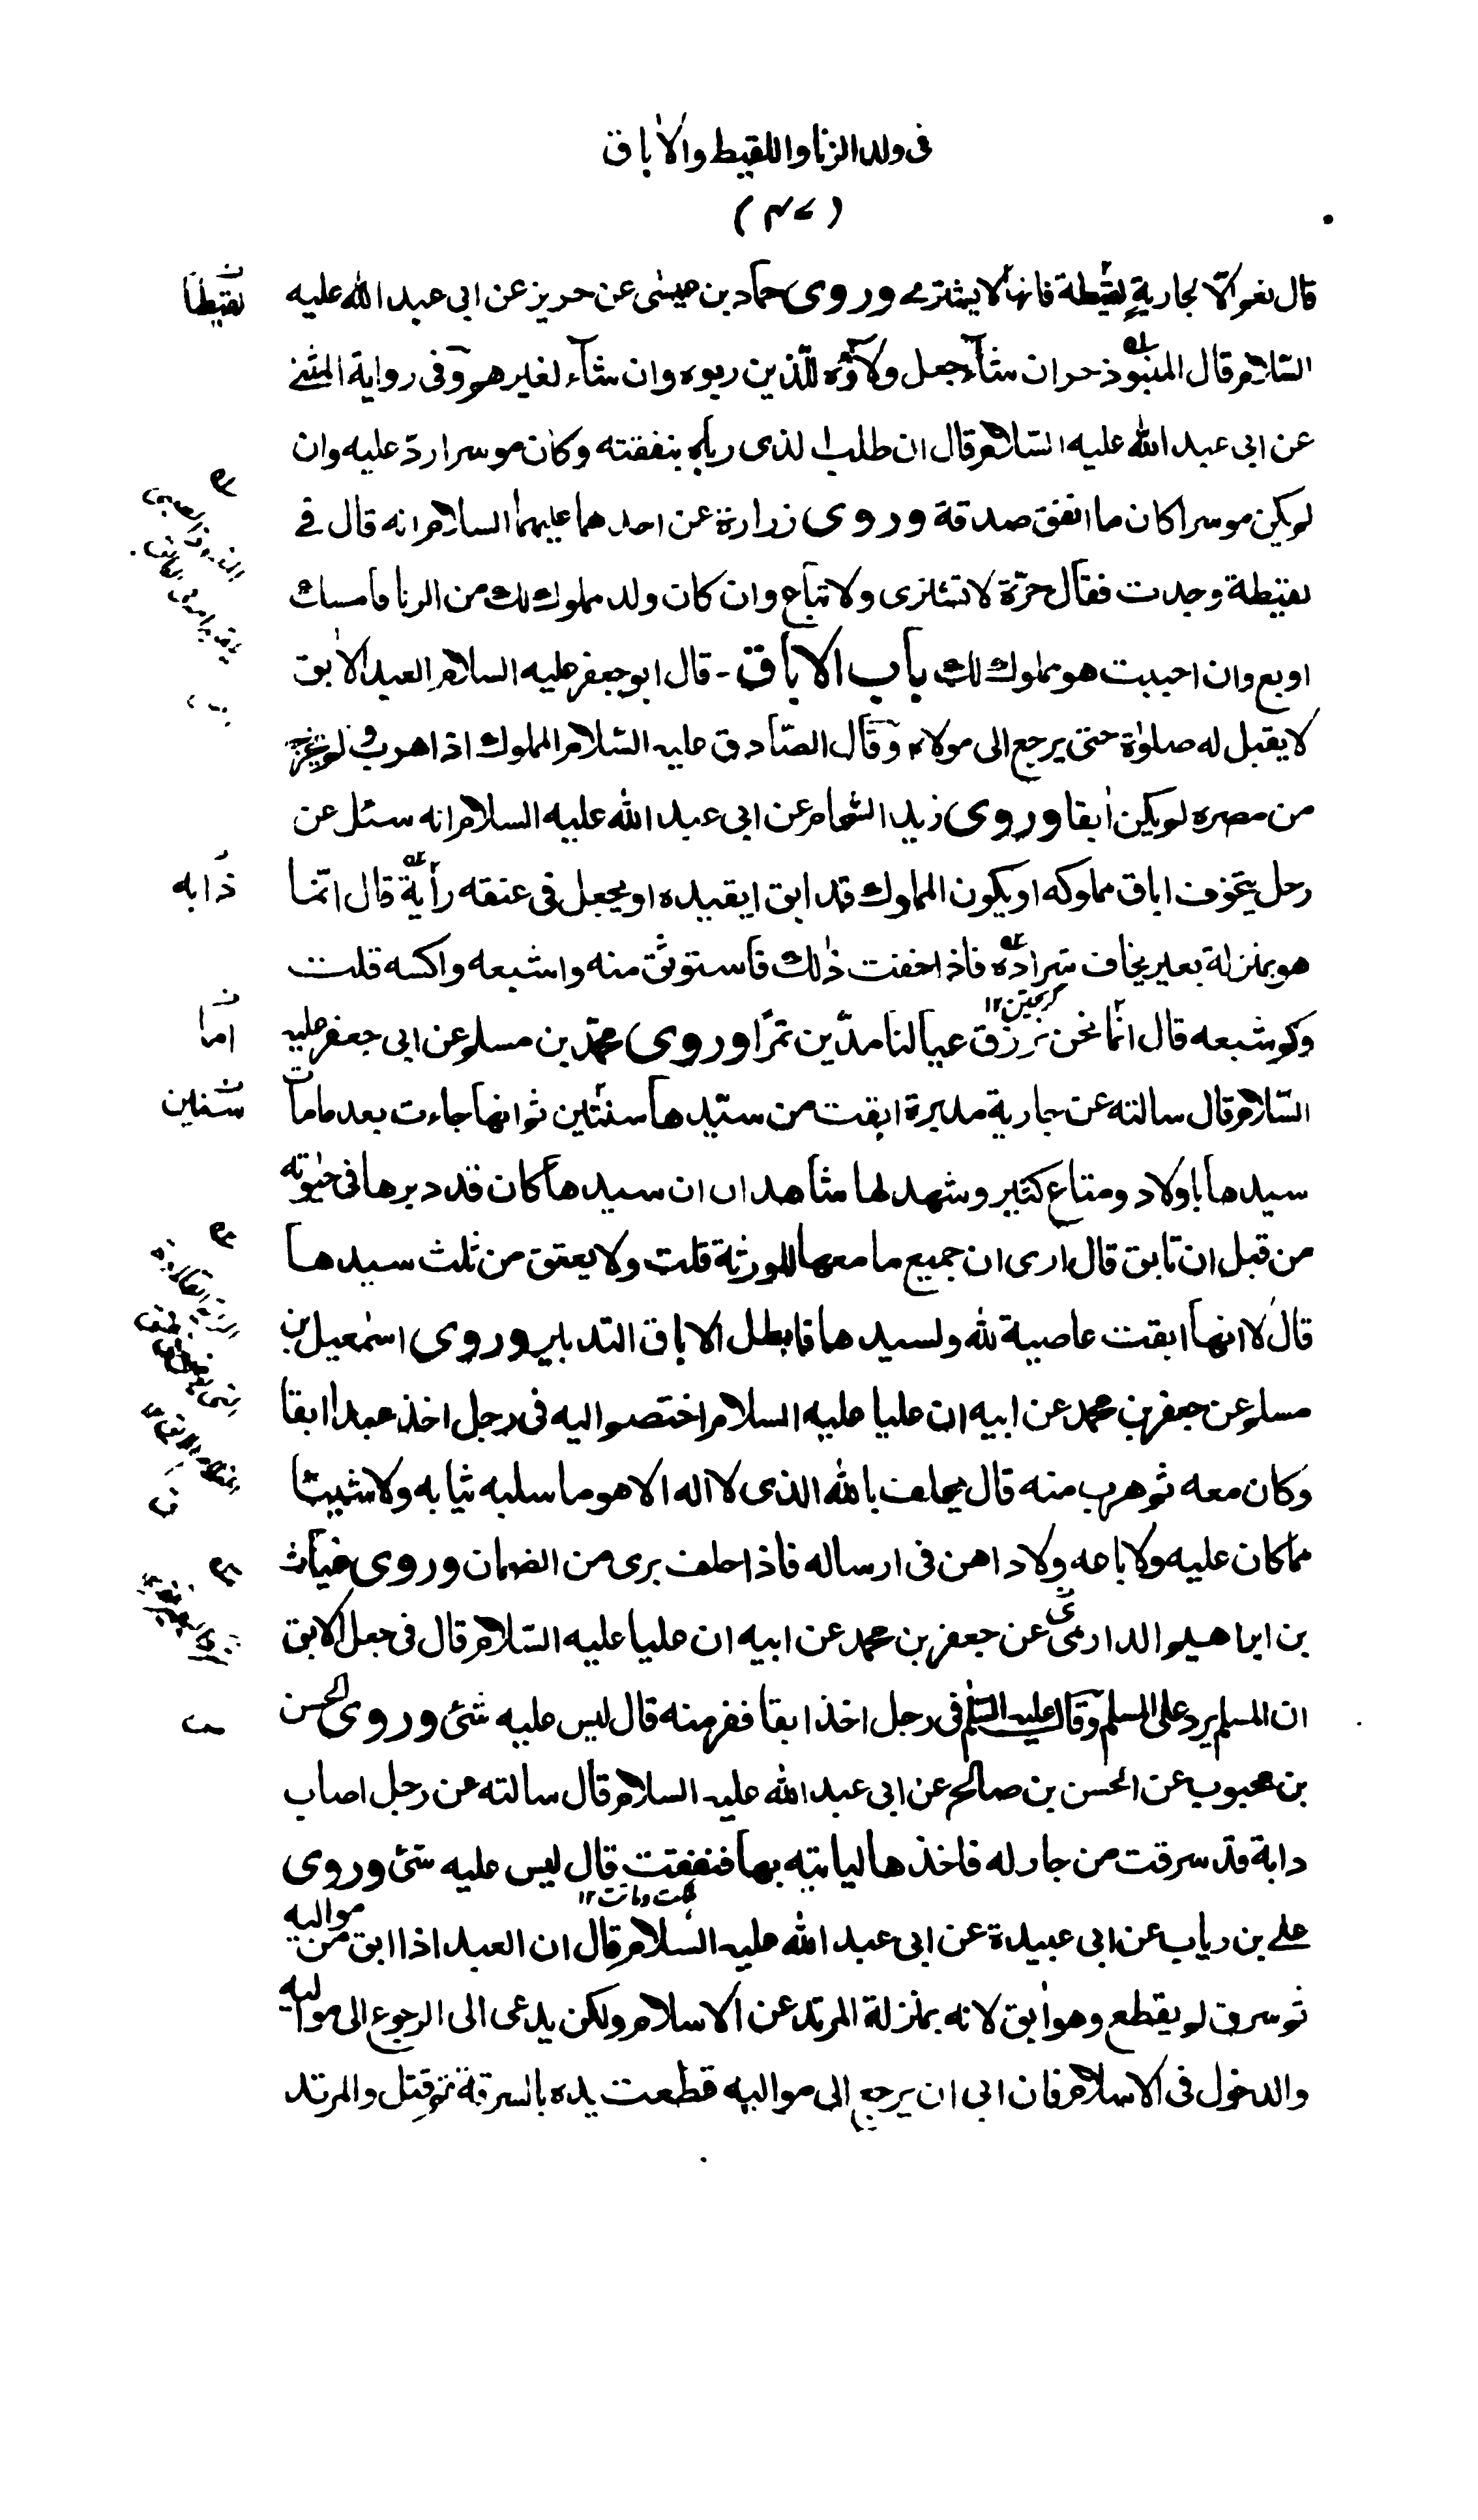 فى ولد الزنا واللقيط والاباق
(۴۷)
قال نعم الا لجارية لقيطة فانها لا يشترى وروى حماد بن عيسى عن حريز عن ابى عبد الله عليه
لقيطا
السّلام قال المنبوذ حر ان شآء جعل ولآؤه للّذين ربوه وان شآء لغيرهم وفى رواية المثنى
عن ابى عبد الله عليه السّلام قال ان طلب الذى رباه بنفقته وكان موسرا ردّ عليه وان
لم يكن موسرا كان ما انفق صدقة وروى زرارة عن احدهما عليهما السلام انه قال فى
لقيطة وجدت فقال حرّة لا تشترى ولا تباع وان كان ولد مملوك لك من الزنا فامسك
او بع وان احببت هو مملوك لك باب الاباق - قال ابو جعفر عليه السلام العبد الابق
لا يقبل له صلوٰة حتى يرجع الى مولاه وقال الصّادق عليه السّلام المملوك اذا هرب ولم يخرج
من مصره لم يكن اٰبقا وروى زيد الشحام عن ابى عبد الله عليه السلام انه سئل عن
رجل يتخوف اباق مملوكه او يكون المملوك قد ابق ايقيده او يجعل فى عنقه رأية قال انّما
ذابه
هو بمنزلة بعير يخاف شراده فاذا خفت ذٰلك فاستوثق منه واشبعه واكسه قلت
وكم شبعه قال انّما نحن نرزق عيالنا مدّين تمرًا وروى محمّد بن مسلم عن ابى جعفر عليه
اما
السّلام قال سالته عن جارية مدبرة ابقت من سيّدها سنتين ثم انها جاءت بعد ما مات
سنين
سيدها باولاد ومتاع كثير وشهد لها شاهدان ان سيدها كان قد دبرها فى حيوته
من قبل ان تابق قال ارى ان جميع ما معها للورثة قلت ولا يعتق من ثلث سيدها
قال لا انها ابقت عاصية لله ولسيدها فابطل الاباق التدبير وروى اسمٰعيل بن
مسلم عن جعفر بن محمد عن ابيه ان عليا عليه السلام اختصموا اليه فى رجل اخذ عبدا ابقا
وكان معه ثم هرب منه قال يحلف بالله الذى لا اله الا هو ما سلبه ثيابه ولا شيئا
مما كان عليه ولا باعه ولا داهن فى ارساله فاذا حلف برى من الضمان وروى غياث
بن ابراهيم الدارمى عن جعفر بن محمد عن ابيه ان عليا عليه السّلام قال فى جعل الابق
ان المسلم يرد على المسلم وقال عليه السّلم فى رجل اخذ ابقا ففر منه قال ليس عليه شئ وروى الحسن
بن محبوب عن الحسن بن صالح عن ابى عبد الله عليه السلام قال سالته عن رجل اصاب
دابة قد سرقت من جار له فاخذها لياتيه بها فنفقت قال ليس عليه شئ وروى
على بن رياب عن ابى عبيدة عن ابى عبد الله عليه السّلام قال ان العبد اذا ابق من مواليه
ثم سرق لم يقطع وهو اٰبق لانه بمنزلة المرتد عن الاسلام ولكن يدعى الى الرجوع الى مواليه
والدخول فى الاسلام فان ابى ان يرجع الى مواليه قطعت يده بالسرقة ثم قتل والمرتد